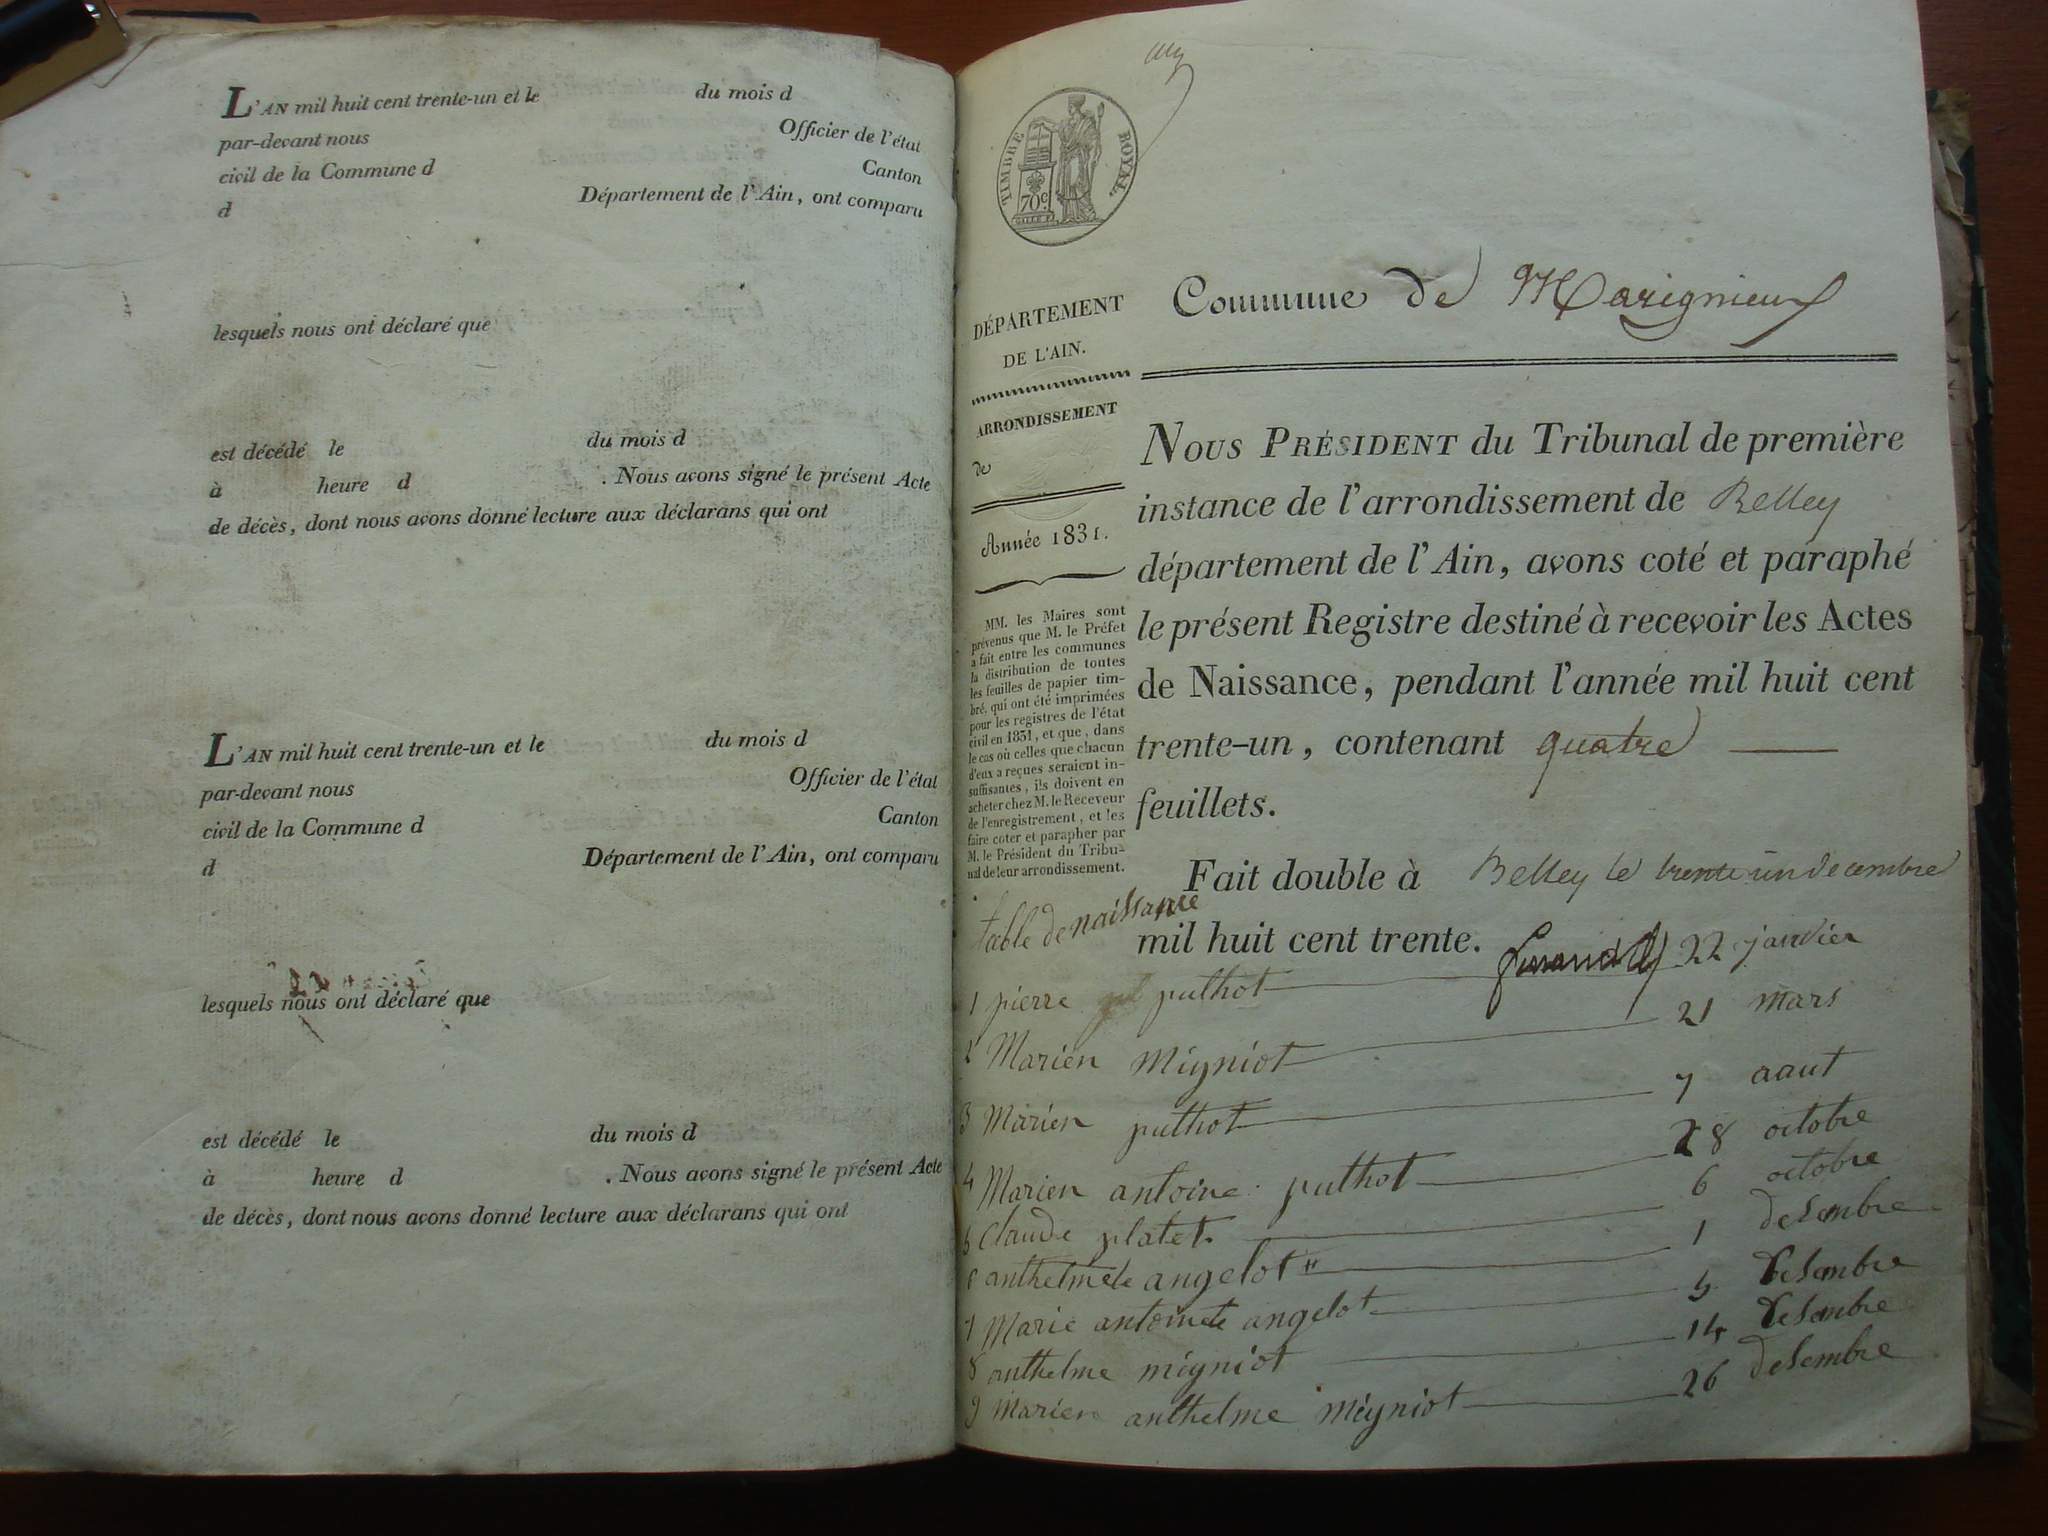 L'AN mil huit cent trente-un et le du mois d
par-devant nous Officier de l'état
civil de la Commune d Canton
d Département de l'Ain, ont comparu
lesquels nous ont déclaré que
est décédé le du mois d
à heure d . Nous avons signé le présent Acte
de décès, dont nous avons donné lecture aux déclarans qui ont
L'AN mil huit cent trente-un et le du mois d
par-devant nous Officier de l'état
civil de la Commune d Canton
d Département de l'Ain, ont comparu
lesquels nous ont déclaré que
est décédé le du mois d
à heure d . Nous avons signé le présent Acte
de décès, dont nous avons donné lecture aux déclarans qui ont
TIMBRE ROYAL.
70c
DÉPARTEMENT
DE L'AIN.
ARRONDISSEMENT
de
Année 1831.
MM. les Maires sont
prévenus que M. le Préfet
a fait entre les communes
la distribution de toutes
les feuilles de papier tim-
bré, qui ont été imprimées
pour les registres de l'état
civil en 1831, et que, dans
le cas où celles que chacun
d'eux a reçues seraient in-
suffisantes, ils doivent en
acheter chez M. le Receveur
de l'enregistrement, et les
faire coter et parapher par
M. le Président du Tribu-
nal de leur arrondissement.
Commune de Marignieux
NOUS PRÉSIDENT du Tribunal de première
instance de l'arrondissement de Belley
département de l'Ain, avons coté et paraphé
le présent Registre destiné à recevoir les Actes
de Naissance, pendant l'année mil huit cent
trente-un, contenant quatre
feuillets.
Fait double à Belley le trente un decembre
mil huit cent trente.
table de naissance
1 pierre puthot 22 janvier
2 Marien Migniot 21 mars
3 Marien puthot 7 aaut
4 Marien antoine puthot 28 octobre
5 Claude platet 6 octobre
6 anthelmete angelot 1 desembre
7 Marie antoinete angelot 5 desembre
8 anthelme migniot 14 desembre
9 Marien anthelme migniot 26 desembre